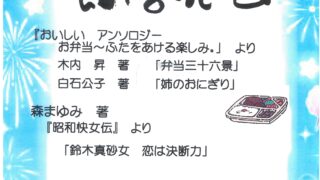 『おいしい　アンソロジー
お弁当～ふたをあける楽しみ。』　より
木内　昇　著　　「弁当三十六景」
白石公子　著　　「姉のおにぎり」
森まゆみ　著
『昭和快女伝』　より
「鈴木真砂女　恋は決断力」